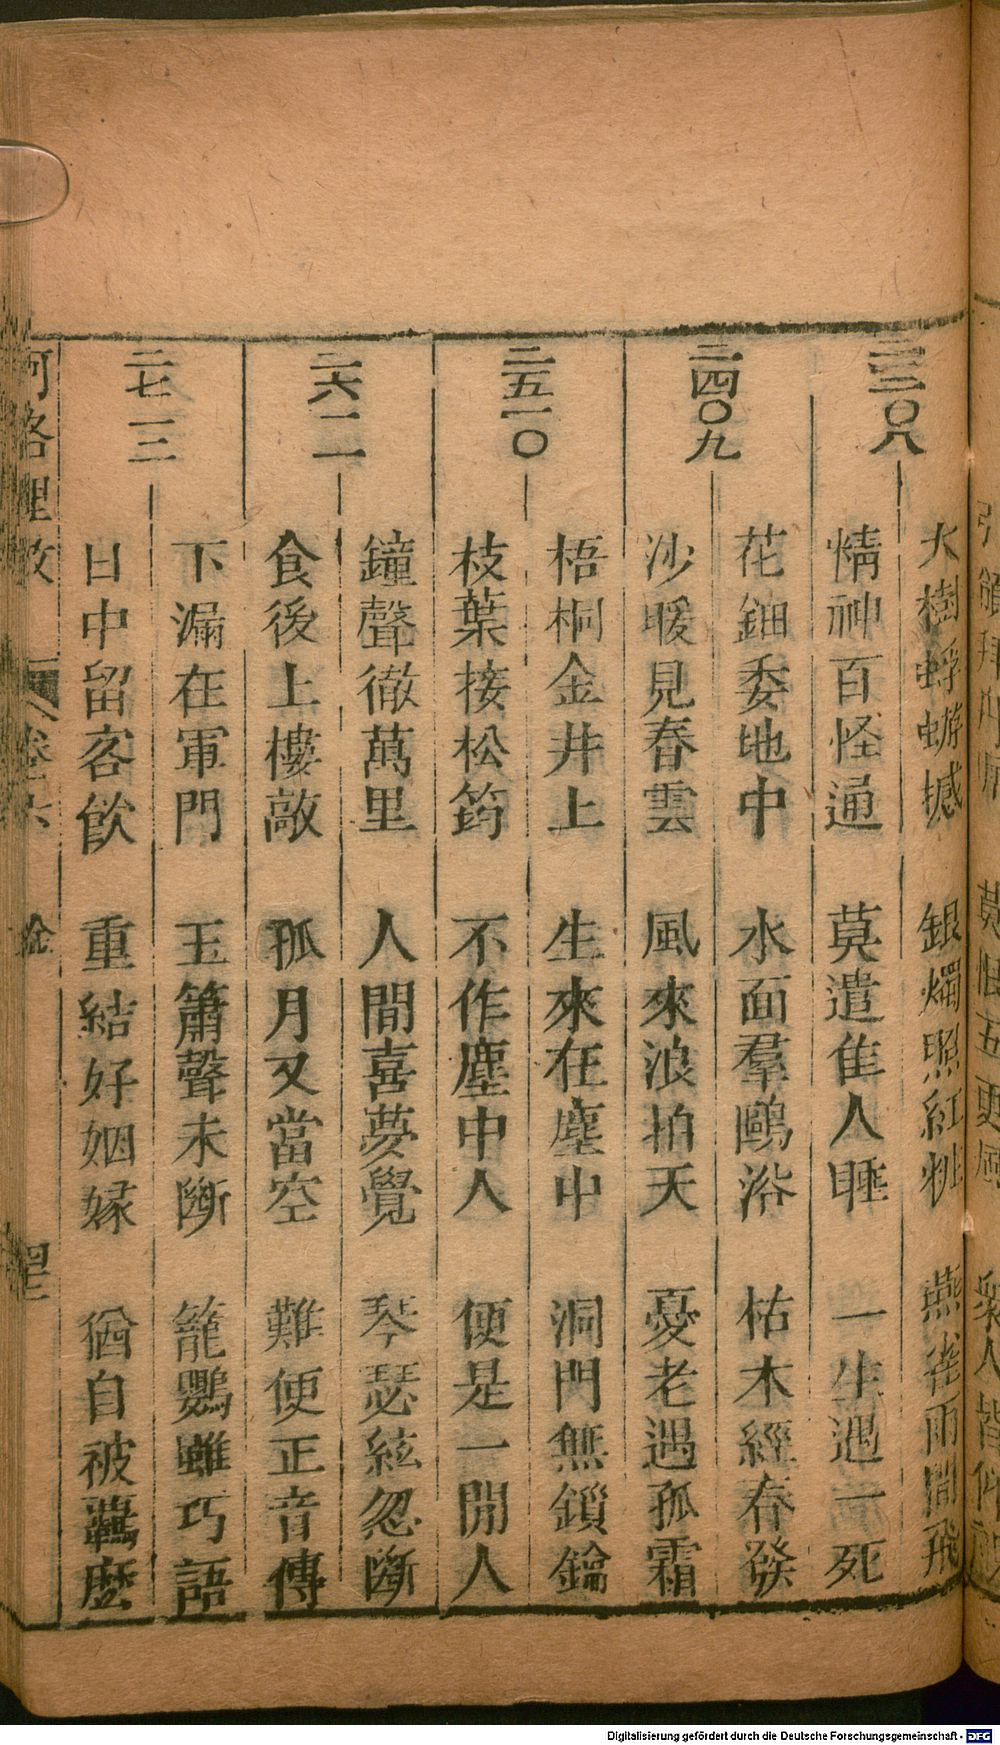 大樹蜉蝣撼　銀燭照紅粧　燕雀雨間飛
二三〇八
情神百怪通　莫遣隹人睡　一生遇一死
花鈿委地中　水面羣鷗浴　枯木經春發
二四〇九
沙暖見春雲　風來浪拍天　憂老遇孤霜
梧桐金井上　生來在塵中　洞門無鎖鑰
二五一〇
枝葉接松筠　不作塵中人　便是一閒人
鐘聲徹萬里　人間喜夢覺　琴瑟絃忽斷
二六一一
食後上樓敲　孤月又當空　難便正音傳
下漏在軍門　玉簫聲未斷　籠鸚雖巧語
二七一三
日中留客飲　重結好姻嫁　猶自被羈縻
河洛理數　卷六
Digitalisierung gefördert durch die Deutsche Forschungsgemeinschaft - DFG